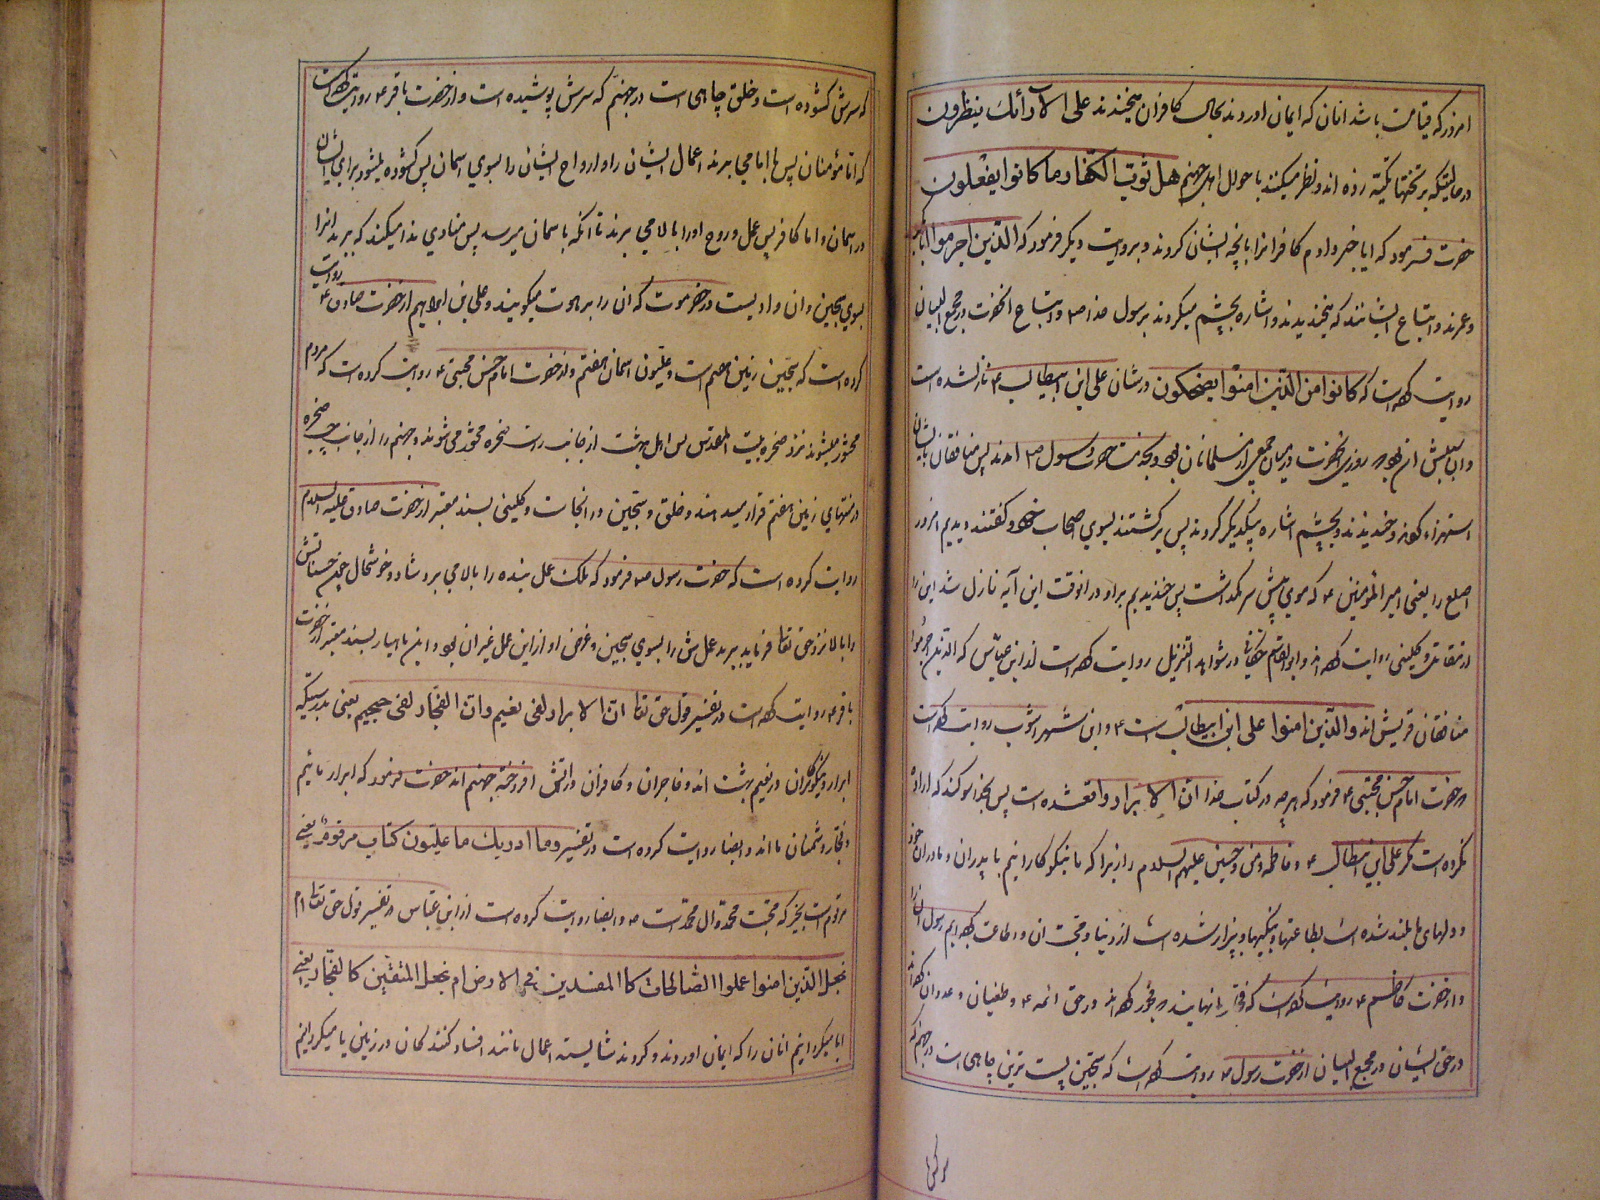 امروز که قیامت باشد انان که ایمان اوردند بحال کافران میخندند علی الارائک ینظرون
در حالتیکه بر تختها تکیه زده اند و نظر میکنند باحوال اهل جهنم هل ثوب الکفار ما کانوا یفعلون
حضرت فرمود که ایا خبر دادم کافرانرا بانچه ایشان کردند و بروایت دیگر فرمود که الذین اجرموا
و اتباع ایشانند که میخندیدند و اشاره بچشم میکردند برسول خدا ص و اتباع انحضرت در مجمع البیان
روایت کرده است که کانوا من الذین امنوا یضحکون در شان علی ابن ابیطالب ع نازل شده است
روزی انحضرت در میان جمعی از مسلمانان بخدمت حضرت رسول ص امدند پس منافقان بایشان
استهزاء کردند و خندیدند و بچشم اشاره بیکدیگر کردند پس برگشتند بسوی اصحاب خود و گفتند دیدیم امروز
اصلع را یعنی امیر المؤمنین ع که موی پیش سر نداشت پس خندیدیم براو در انوقت این آیه نازل شد این را
از مقاتل و کلینی روایت کرده اند و ابوالقاسم حسکانی در شواهد التنزیل روایت کرده است از ابن عباس که الذین اجرموا
منافقان قریش اند و الذین امنوا علی ابن ابیطالب است ع و ابن شهر اشوب روایت کرده است
از حضرت امام حسن مجتبی ع فرمود که هر چه در کتاب خدا ان الابرار واقع شده است پس بخدا سوگند که اراده
نکرده است مگر علی ابن ابیطالب ع و فاطمه و من و حسین علیهم السلام را زیرا که ما نیکوکارانیم با پدران و مادران خود
و دلهای ما بلند شده است بطاعتها و نیکیها و بیزار شده است از دنیا و محبت ان و اطاعت کرده ایم رسول
و از حضرت کاظم ع روایت کرده است که فجار انهایند که فجور کرده اند در حق ائمه ع و طغیان و عدوان کرده اند
در حق ایشان در مجمع البیان از حضرت رسول ص روایت کرده است که سجین پست ترین چاهی است در جهنم که
که سرش گشوده است و خلق چاهی است در جهنم که سرش پوشیده است و از حضرت باقر ع روایت کرده است
که اما مؤمنان پس بالا می برند اعمال ایشان را و ارواح ایشان را بسوی اسمان پس گشوده میشود برای ایشان
در اسمان و اما کافر پس عمل و روح او را بالا می برند تا انکه باسمان میرسد پس منادی ندا میکند که ببرید انرا
بسوی سجین و ان وادیست در حضرموت که ان را برهوت میگویند و علی بن ابراهیم از حضرت صادق ع روایت
کرده است که سجین زمین هفتم است و علیون اسمان هفتم و از حضرت امام حسن مجتبی ع روایت کرده است که مردم
محشور میشوند نزد صخره بیت المقدس پس اهل بهشت از جانب راست صخره محشور می شوند و جهنم را از جانب چپ صخره
در منتهای زمین هفتم قرار میدهند و خلق و سجین در انجاست و کلینی بسند معتبر از حضرت صادق علیه السلام
روایت کرده است که حضرت رسول ص فرمود که ملک عمل بنده را بالا می برد شاد و خوشحال چون حسناتش
را بالا برد حق تعا فرماید ببرید عملش را بسوی سجین و غرض او از این عمل غیر ان بود و ابن ماهیار بسند معتبر از حضرت
باقر ع روایت کرده است در تفسیر قول حق تعا ان الابرار لفی نعیم وان الفجار لفی جحیم یعنی بدرستیکه
ابرار و نیکوکاران در نعیم بهشت اند و فاجران و کافران در اتش افروخته جهنم اند حضرت فرمود که ابرار مائیم
و فجار دشمنان ما اند و ایضا روایت کرده است در تفسیر وما ادریک ما علیون کتاب مرقوم یعنی
مرقوم است بخیر که محبت محمد و ال محمد است ص و ایضا روایت کرده است از ابن عباس در تفسیر قول حق تعا ام
نجعل الذین امنوا عملوا الصالحات کالمفسدین فی الارض ام نجعل المتقین کالفجار یعنی
ایا میگردانیم انان را که ایمان اوردند و کردند شایسته اعمال مانند افساد کنندگان در زمین یا میگردانیم